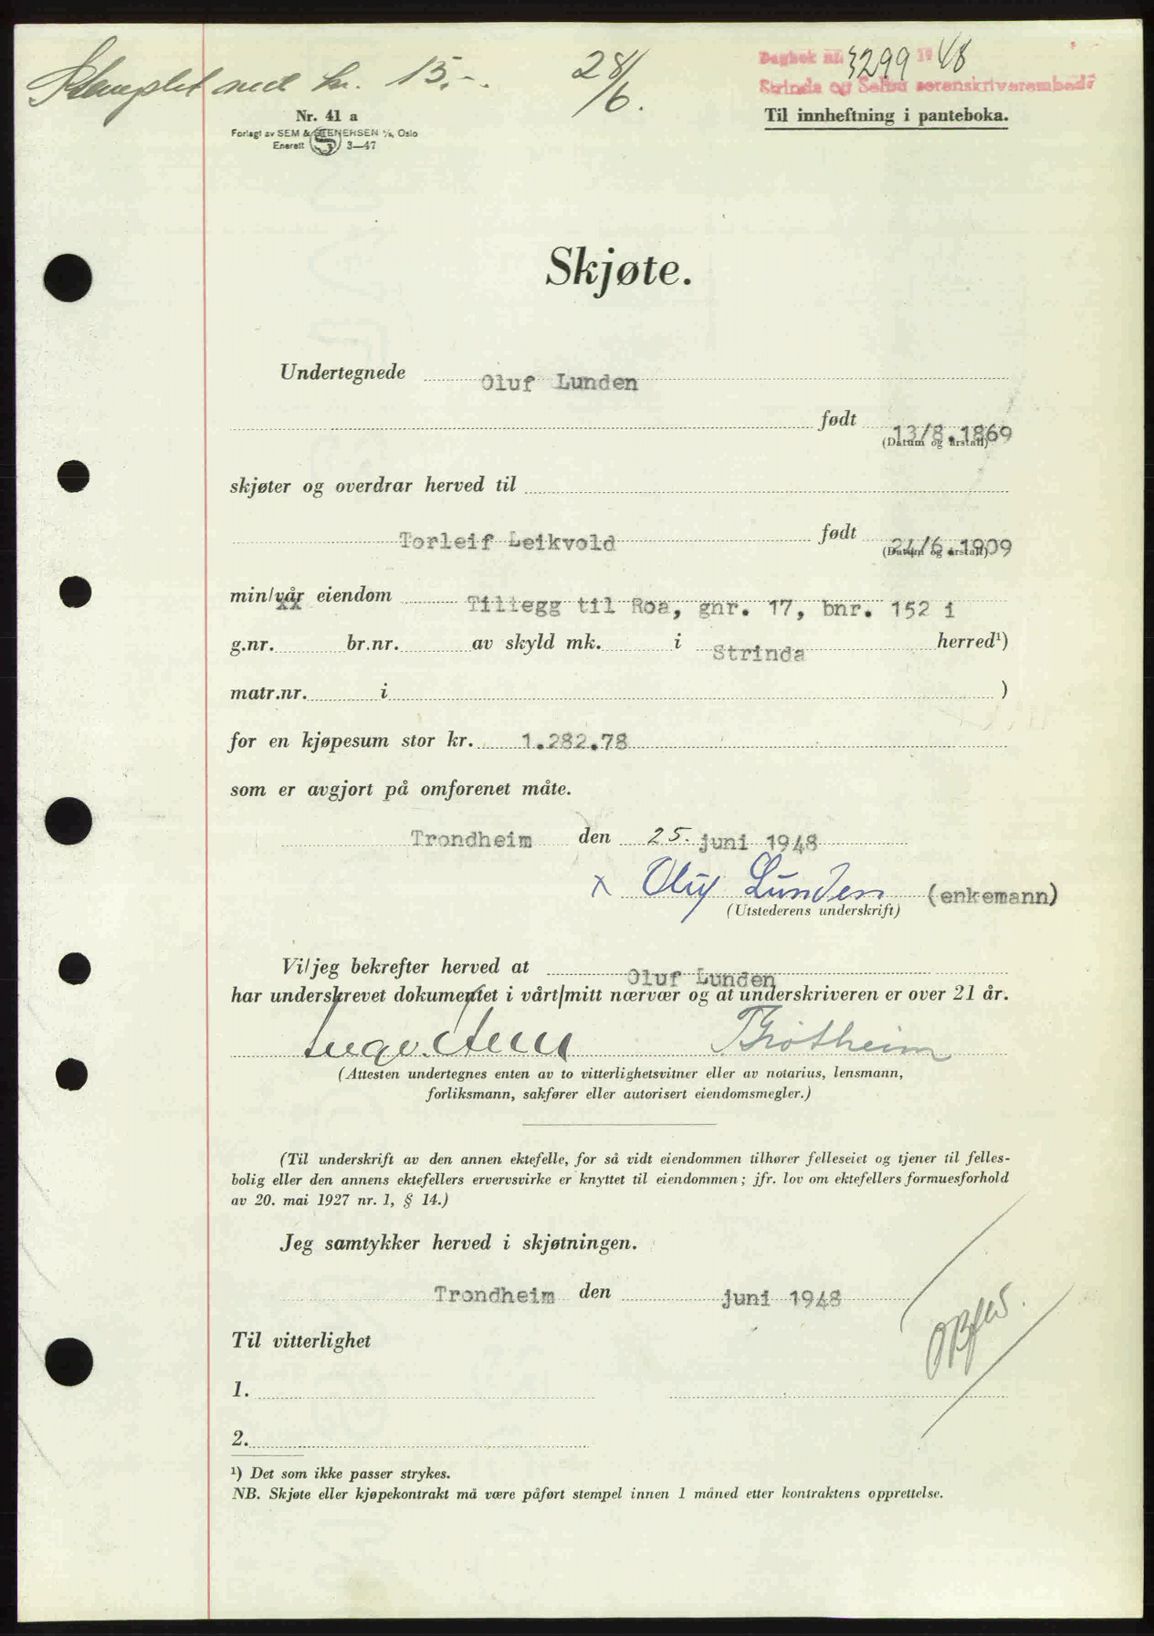 Stemplet med kr. 15.-. 28/6.
Dagbok nr. 3299 19 48
Strinda og Selbu sorenskriverembede
Nr. 41 a
Til innheftning i panteboka.
Forlagt av SEM & STENERSEN A/S, Oslo
Enerett 3—47
Skjøte.
Undertegnede Oluf Lunden
født 13/8.1869
(Datum og årstall)
skjøter og overdrar herved til
Torleif Leikvold født 24/6.1909
(Datum og årstall)
min/vår eiendom Tillegg til Roa, gnr. 17, bnr. 152 i
g.nr. br.nr. av skyld mk. i Strinda herred¹)
matr.nr. i )
for en kjøpesum stor kr. 1.282.78
som er avgjort på omforenet måte.
Trondheim den 25. juni 1948
x Oluf Lunden (enkemann)
(Utstederens underskrift)
Vi/jeg bekrefter herved at Oluf Lunden
har underskrevet dokumentet i vårt/mitt nærvær og at underskriveren er over 21 år.
(Attesten undertegnes enten av to vitterlighetsvitner eller av notarius, lensmann,
forliksmann, sakfører eller autorisert eiendomsmegler.)
(Til underskrift av den annen ektefelle, for så vidt eiendommen tilhører felleseiet og tjener til felles-
bolig eller den annens ektefellers ervervsvirke er knyttet til eiendommen; jfr. lov om ektefellers formuesforhold
av 20. mai 1927 nr. 1, § 14.)
Jeg samtykker herved i skjøtningen.
Trondheim den juni 1948
Til vitterlighet
1.
2.
¹) Det som ikke passer strykes.
NB. Skjøte eller kjøpekontrakt må være påført stempel innen 1 måned etter kontraktens opprettelse.